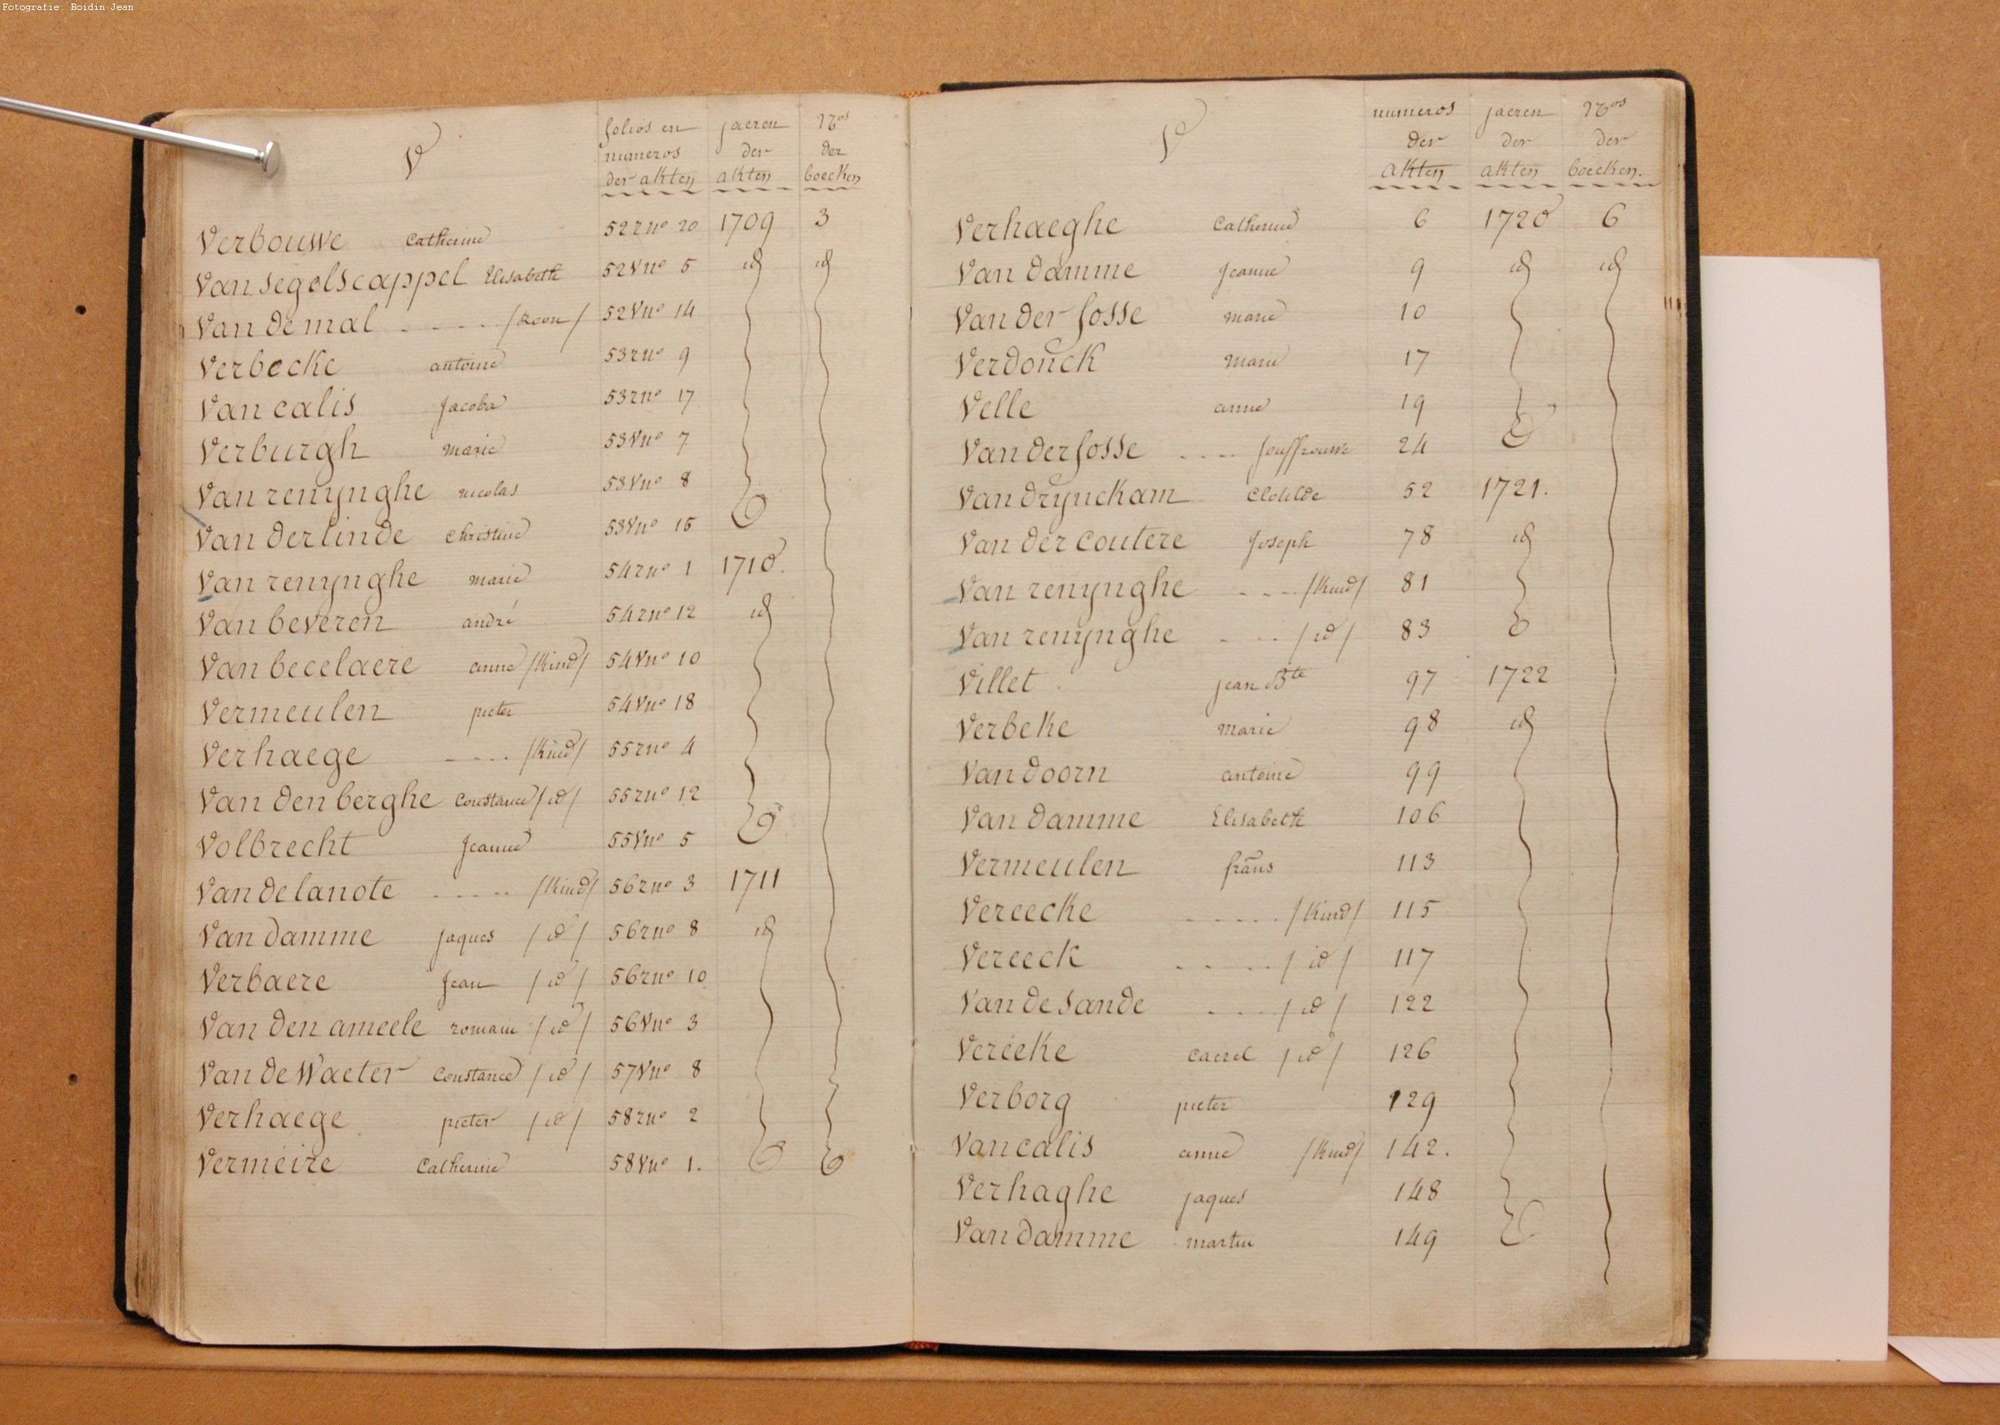 Fotografie: Boidin Jean
V
folios en numeros der akten
jaeren der akten
Nos der boecken
Verbouwe Catherine 52 r no 20 1709 3
Van segelscappel Elisabeth 52 V no 5 id id
Van de mal - - - - - / / 52 V no 14
Verbecke antoine 53 r no 9
Van calis Jacoba 53 r no 17
Verburgh marie 53 V no 7
Van renynghe nicolas 53 V no 8
Van der linde Christine 53 V no 15
Van renynghe marie 54 r no 1 1710.
Van beveren andré 54 r no 12 id
Van becelaere anne /Kind/ 54 V no 10
Vermeulen pieter 54 V no 18
Verhaege - - - - /Kind/ 55 r no 4
Van den berghe Constance /id/ 55 r no 12
Volbrecht Jeanne 55 V no 5
Van de lanote - - - - - /Kind/ 56 r no 3 1711
Van damme jaques /id/ 56 r no 8 id
Verbaere Jean /id/ 56 r no 10
Van den ameele romain /id/ 56 V no 3
Van de Waeter Constance /id/ 57 V no 8
Verhaege pieter /id/ 58 r no 2
Vermeire Catherine 58 V no 1.
V
numeros der akten
jaeren der akten
Nos der boecken.
Verhaeghe Catherine 6 1720 6
Van damme Jeanne 9 id id
Van der fosse marie 10
Verdonck marie 17
Velle anne 19
Van der fosse - - - - Jouffrouwe 24
Van drynckam Clotilde 52 1721.
Van der coutere Joseph 78 id
Van renynghe - - - /Kind/ 81
Van renynghe - - - /id/ 83
Villet jean Bte 97 1722
Verbeke marie 98 id
Van doorn antoine 99
Van damme Elisabeth 106
Vermeulen frans 113
Vereecke - - - - - /Kind/ 115
Vereeck - - - - - /id/ 117
Van de Sande - - - - /id/ 122
Vereeke Caerel /id/ 126
Verborg pieter 129
Van calis anne /Kind/ 142.
Verhaghe jaques 148
Van damme martin 149